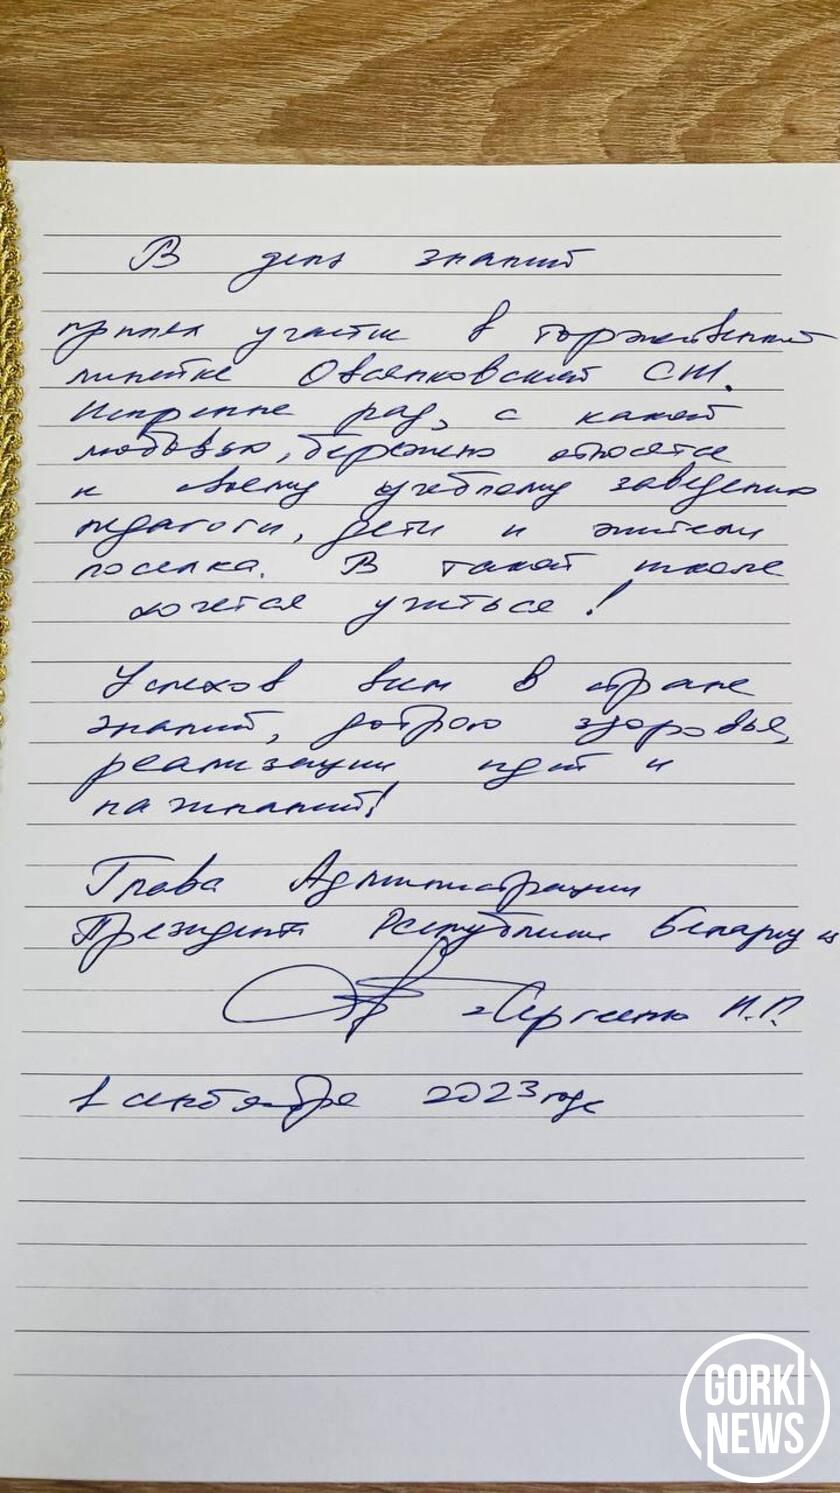 В день знаний
принял участие в торжественной
линейке Овсянковской СШ.
Искренне рад, с какой
любовью, бережно относятся
к своему учебному заведению
педагоги, дети и жители
поселка. В такой школе
хочется учиться!
Успехов вам в стране
знаний, доброго здоровья,
реализации идей и
начинаний!
Глава Администрации
Президента Республики Беларусь
Сергеенко И.П.
1 сентября 2023 года
GORKI
NEWS